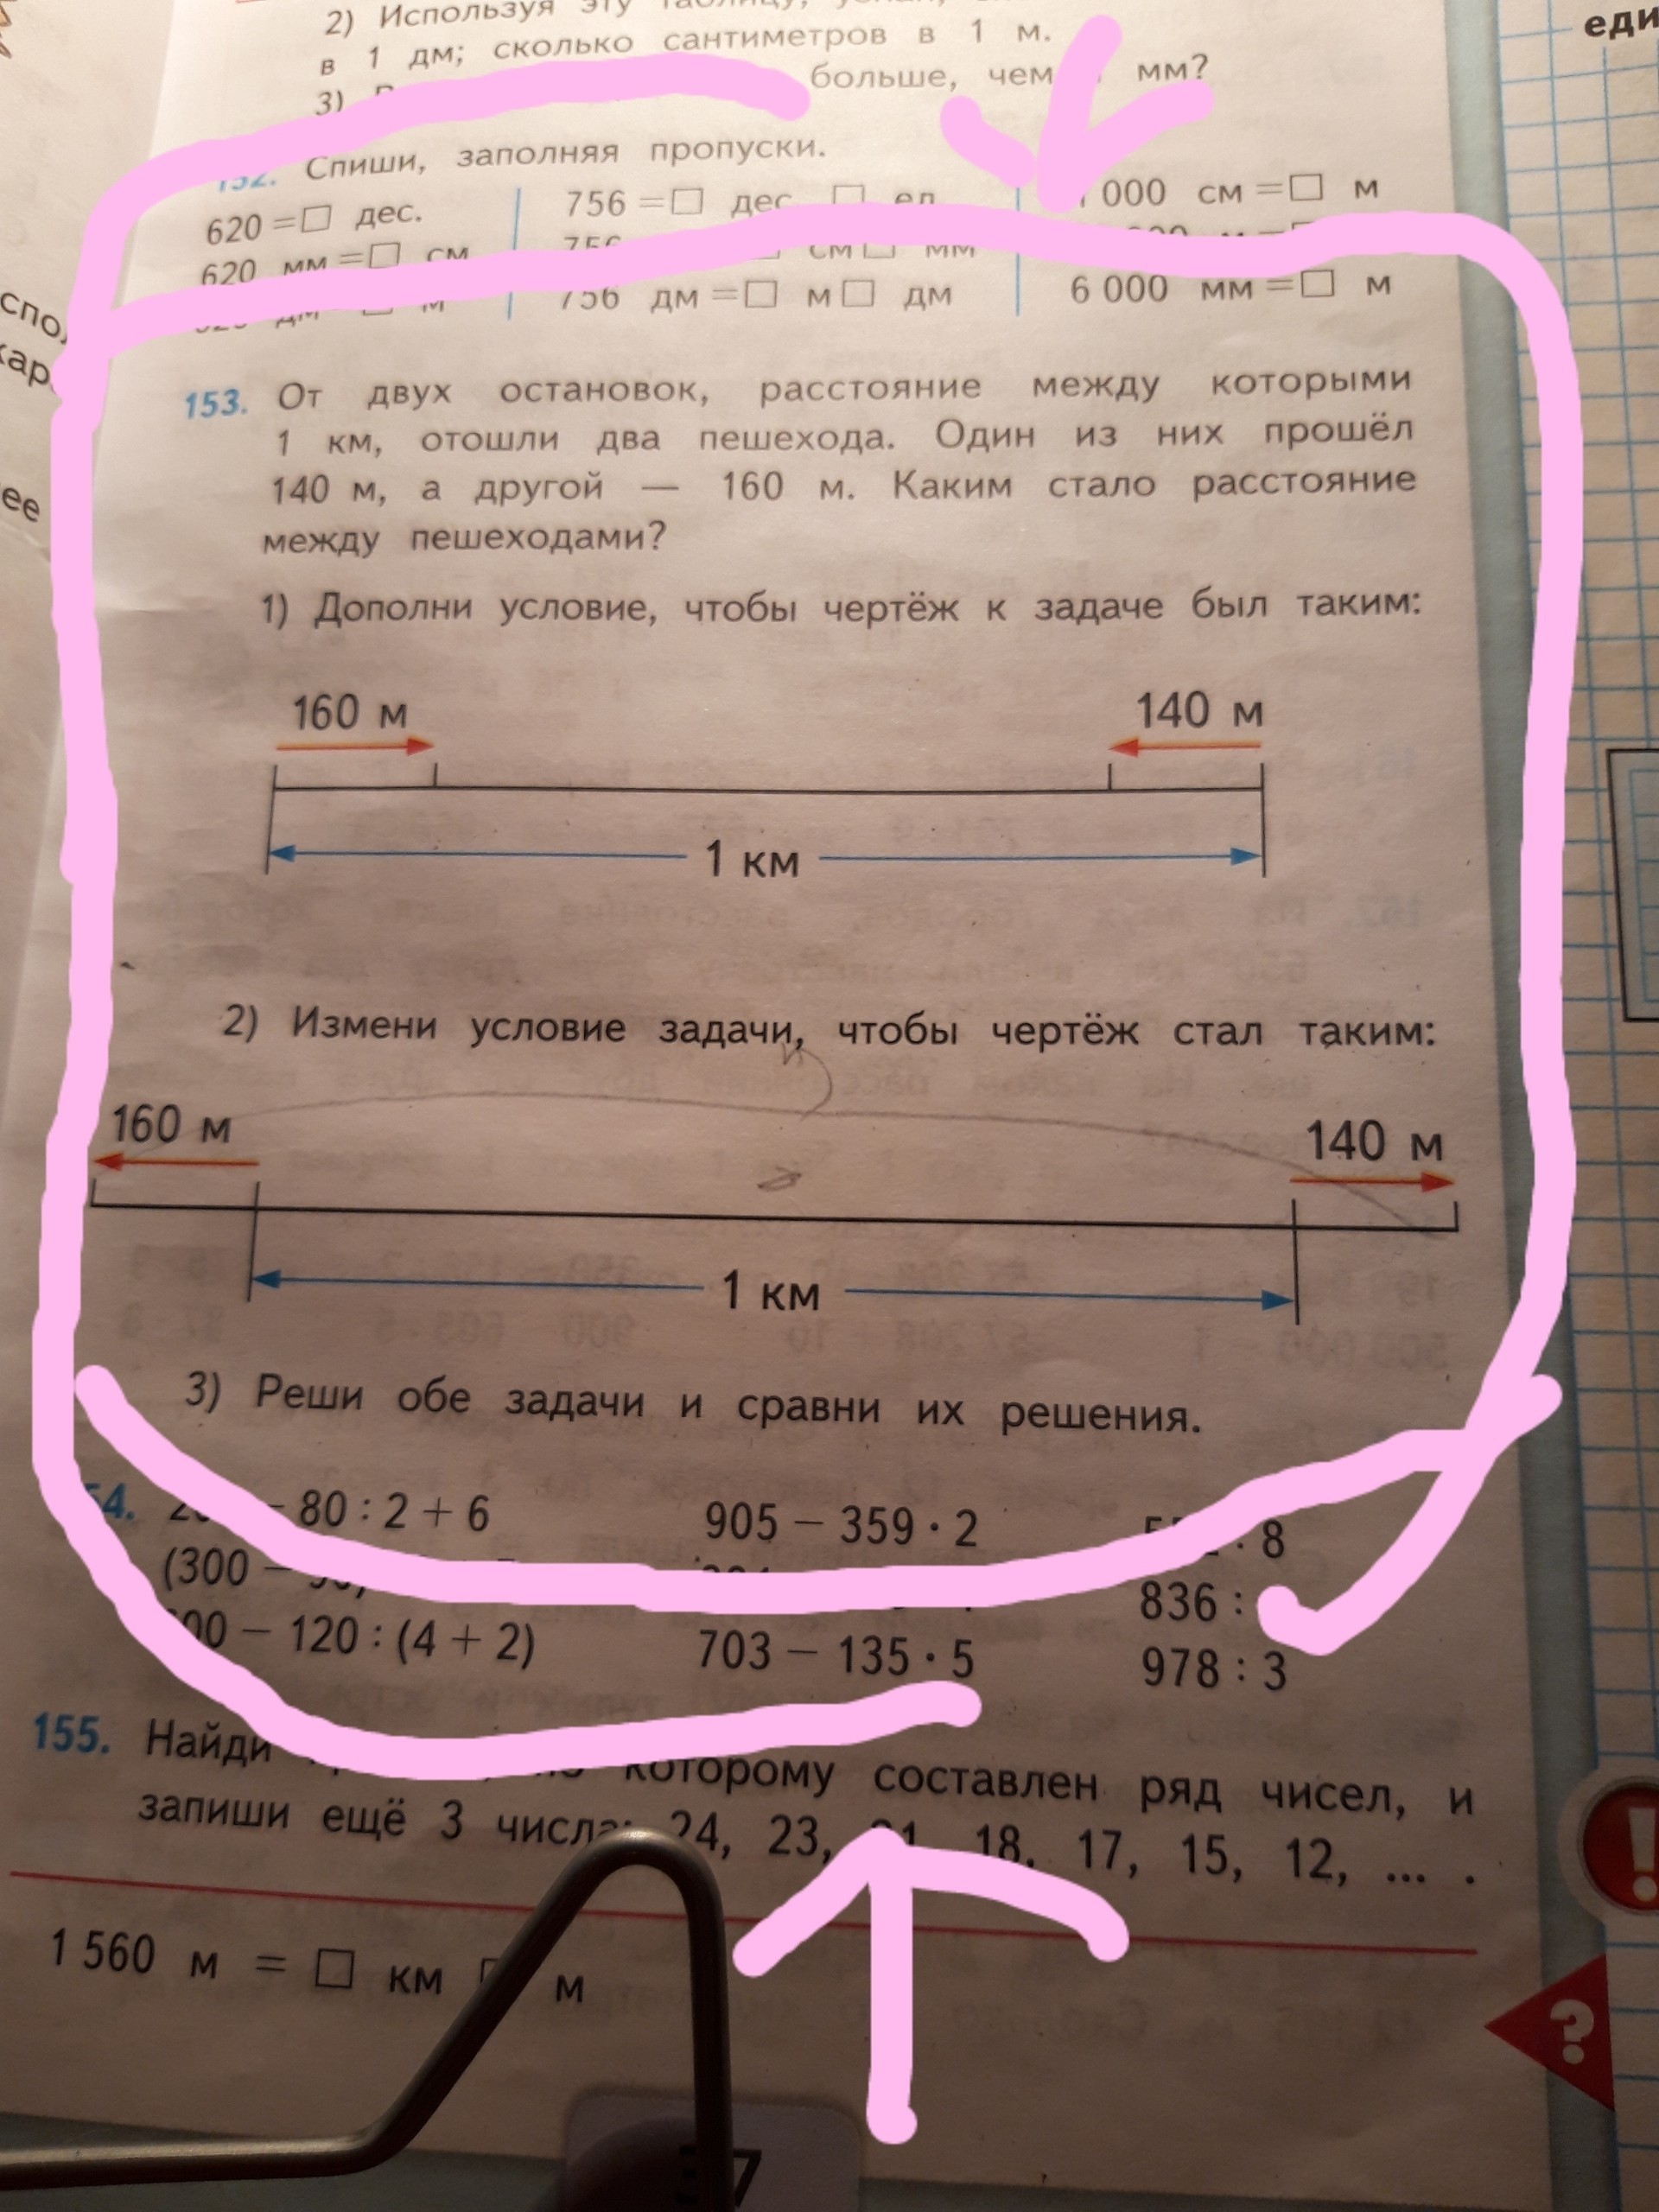 2) Используя эту
в 1 дм; сколько сантиметров в 1 м.
3) больше, чем мм?
152. Спиши, заполняя пропуски.
620 = □ дес.
620 мм = □ см
дм □ м
756 = □ дес. □ ед.
756 см □ мм
756 дм = □ м □ дм
000 см = □ м
6 000 мм = □ м
153. От двух остановок, расстояние между которыми
1 км, отошли два пешехода. Один из них прошёл
140 м, а другой — 160 м. Каким стало расстояние
между пешеходами?
1) Дополни условие, чтобы чертёж к задаче был таким:
160 м 140 м
1 км
2) Измени условие задачи, чтобы чертёж стал таким:
160 м 140 м
1 км
3) Реши обе задачи и сравни их решения.
– 80 : 2 + 6
(300 –
– 120 : (4 + 2)
905 – 359 · 2
703 – 135 · 5
: 8
836 :
978 : 3
155. Найди которому составлен ряд чисел, и
запиши ещё 3 числа: 24, 23, 21, 18, 17, 15, 12, ... .
1 560 м = □ км □ м
еди
спол
кар
ее
!
?
7